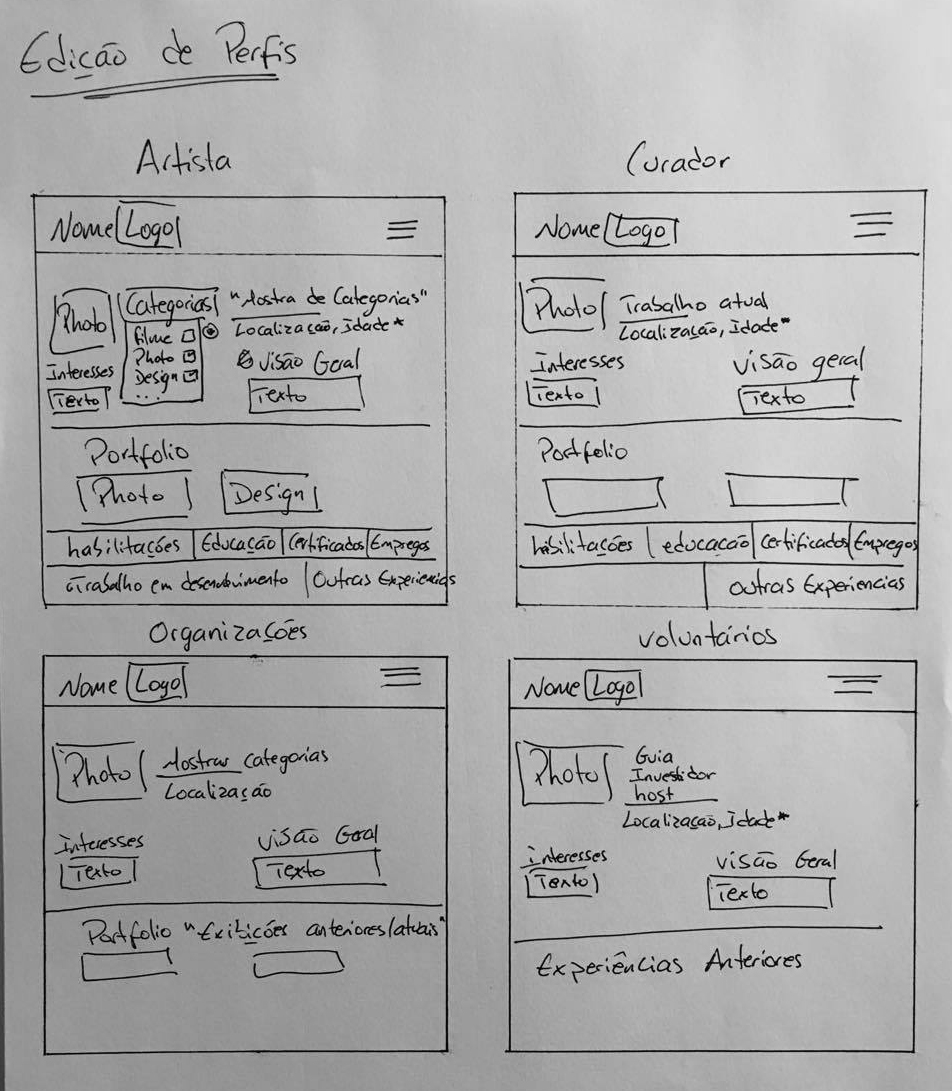 Edição de Perfis
Artista
Nome Logo
Photo
Categorias
Filme
Photo
Design
...
"Mostra de Categorias"
Localização, Idade*
Interesses
Texto
Visão Geral
Texto
Portfolio
Photo Design
habilitações Educação Certificados Empregos
Trabalho em desenvolvimento Outras Experiencias
Curador
Nome Logo
Photo
Trabalho atual
Localização, Idade*
Interesses
Texto
Visão geral
Texto
Portfolio
habilitações educação Certificados Empregos
Outras Experiencias
Organizações
Nome Logo
Photo
Mostrar categorias
Localização
Interesses
Texto
Visão Geral
Texto
Portfolio "Exibições anteriores/atuais"
Voluntários
Nome Logo
Photo
Guia
Investidor
host
Localização, Idade*
Interesses
Texto
Visão Geral
Texto
Experiências Anteriores